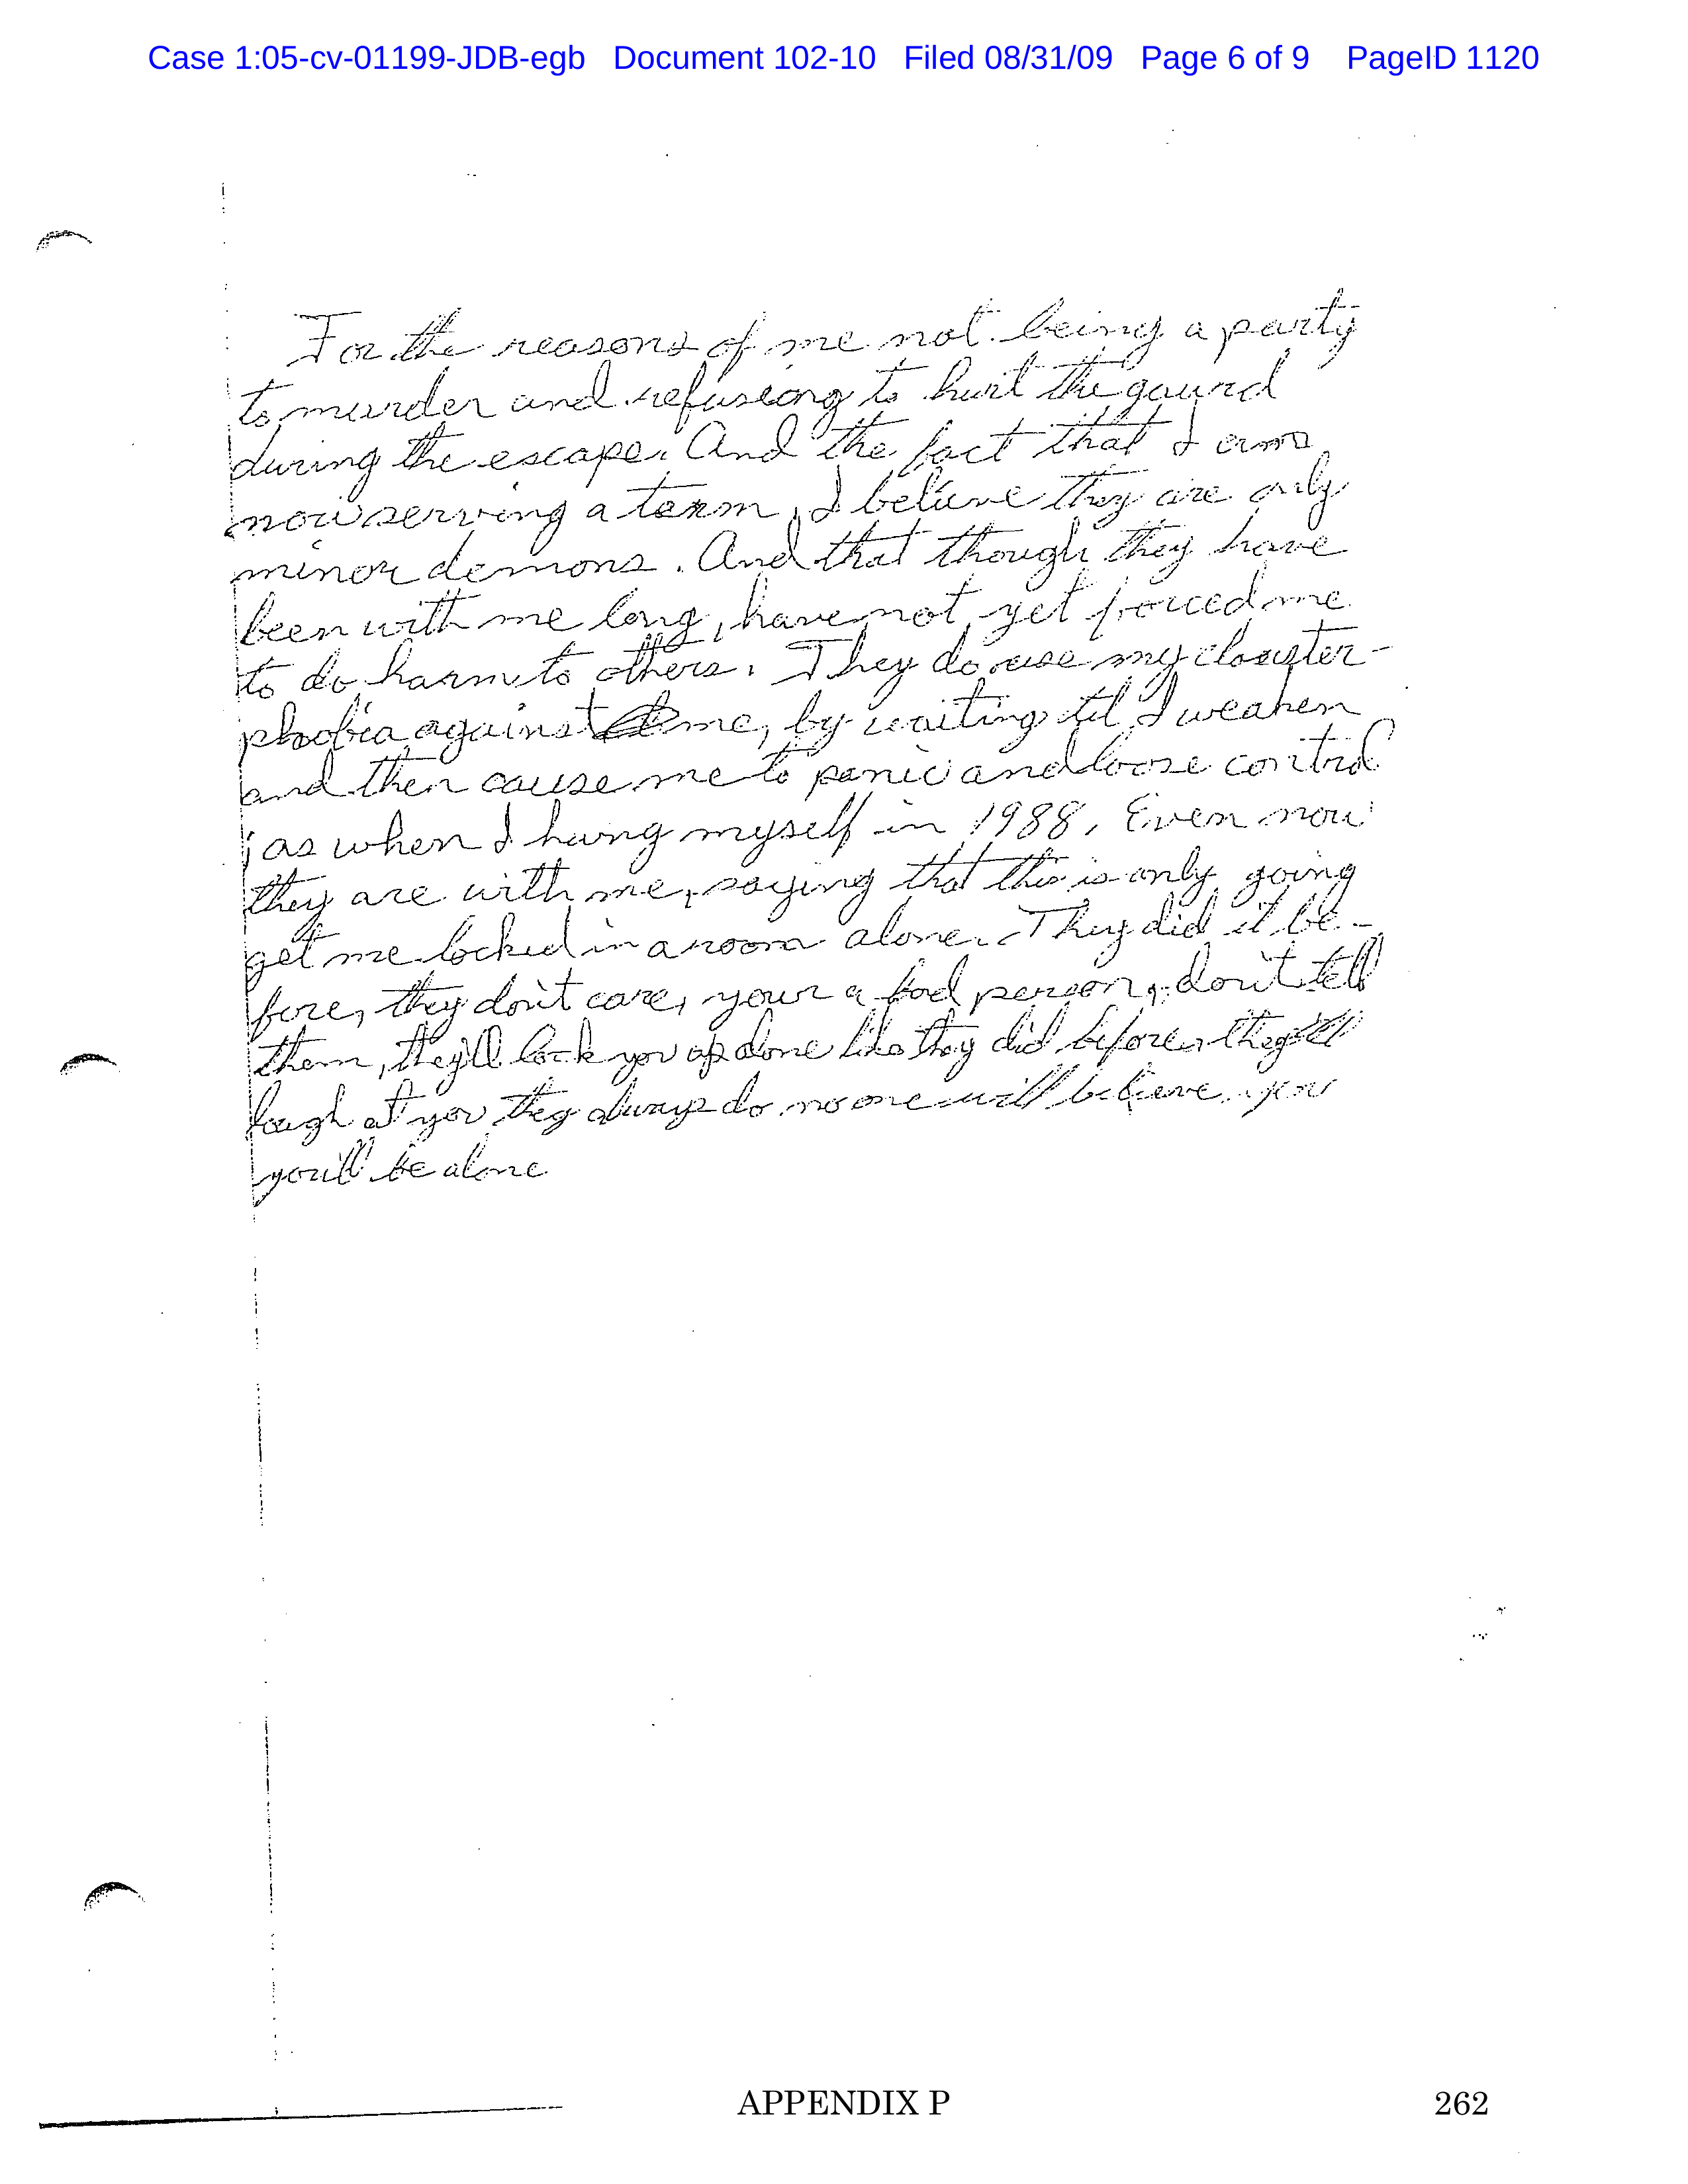 Case 1:05-cv-01199-JDB-egb Document 102-10 Filed 08/31/09 Page 6 of 9 PageID 1120
For the reasons of me not being a party
to murder and refuseing to hurt the gaurd
during the escape. And the fact that I am
now serving a term, I believe they are only
minor demons. And that though they have
been with me long, have not yet forced me
to do harm to others. They do use my clouster-
phobia against me, by waiting til I weaken
and then cause me to panic and loose control
as when I hung myself in 1988. Even now
they are with me, saying that this is only going
get me locked in a room alone. They did it be-
fore, they don't care, your a bad person, don't tell
them, they'll lock you up alone like they did before, they'll
laugh at you they always do no one will believe you
you'll be alone
APPENDIX P 262